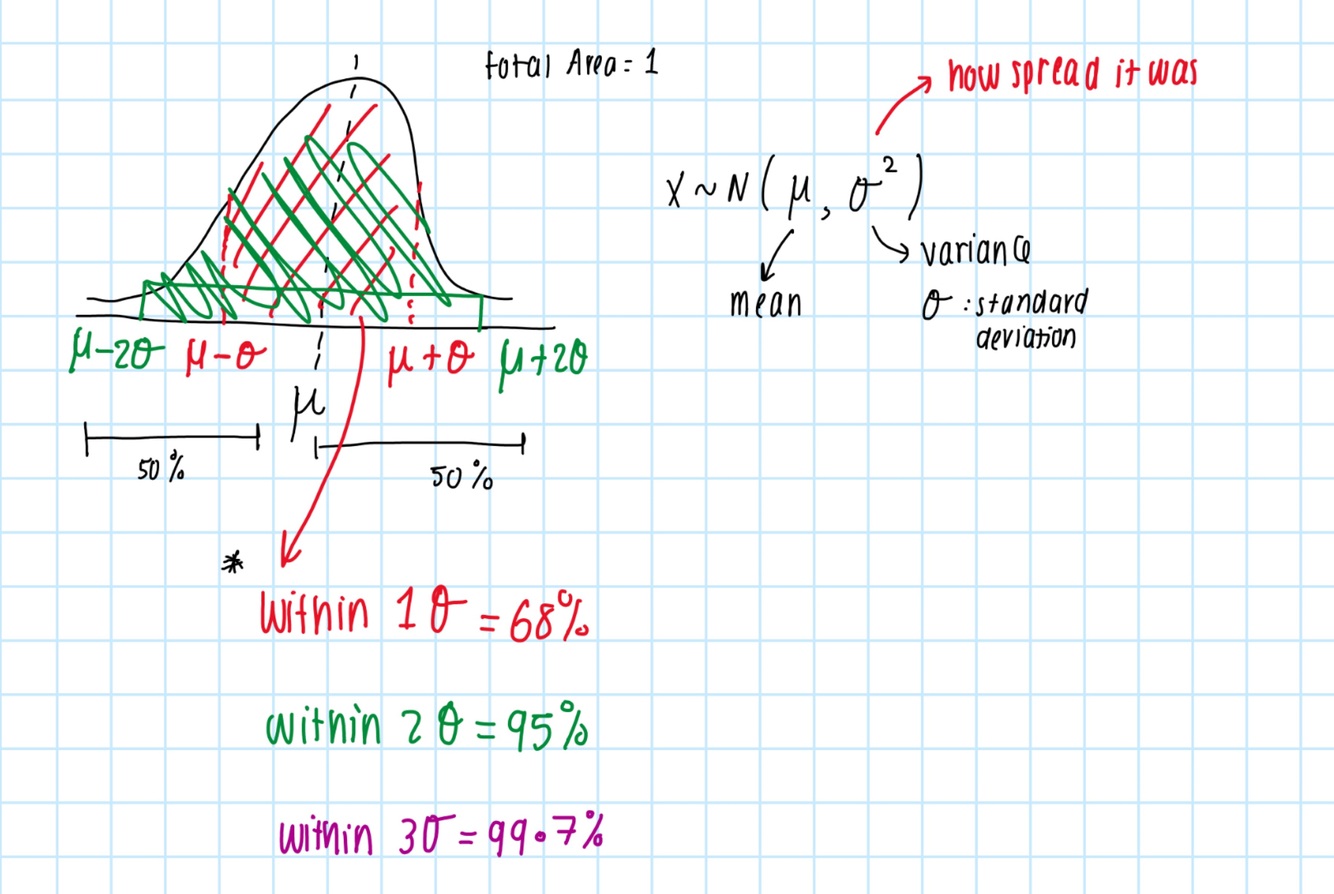 total Area = 1
how spread it was
X ~ N ( μ, σ² )
mean
variance
σ : standard
deviation
μ-2σ μ-σ μ+σ μ+2σ
μ
50%
50%
*
within 1σ = 68%
within 2σ = 95%
within 3σ = 99.7%